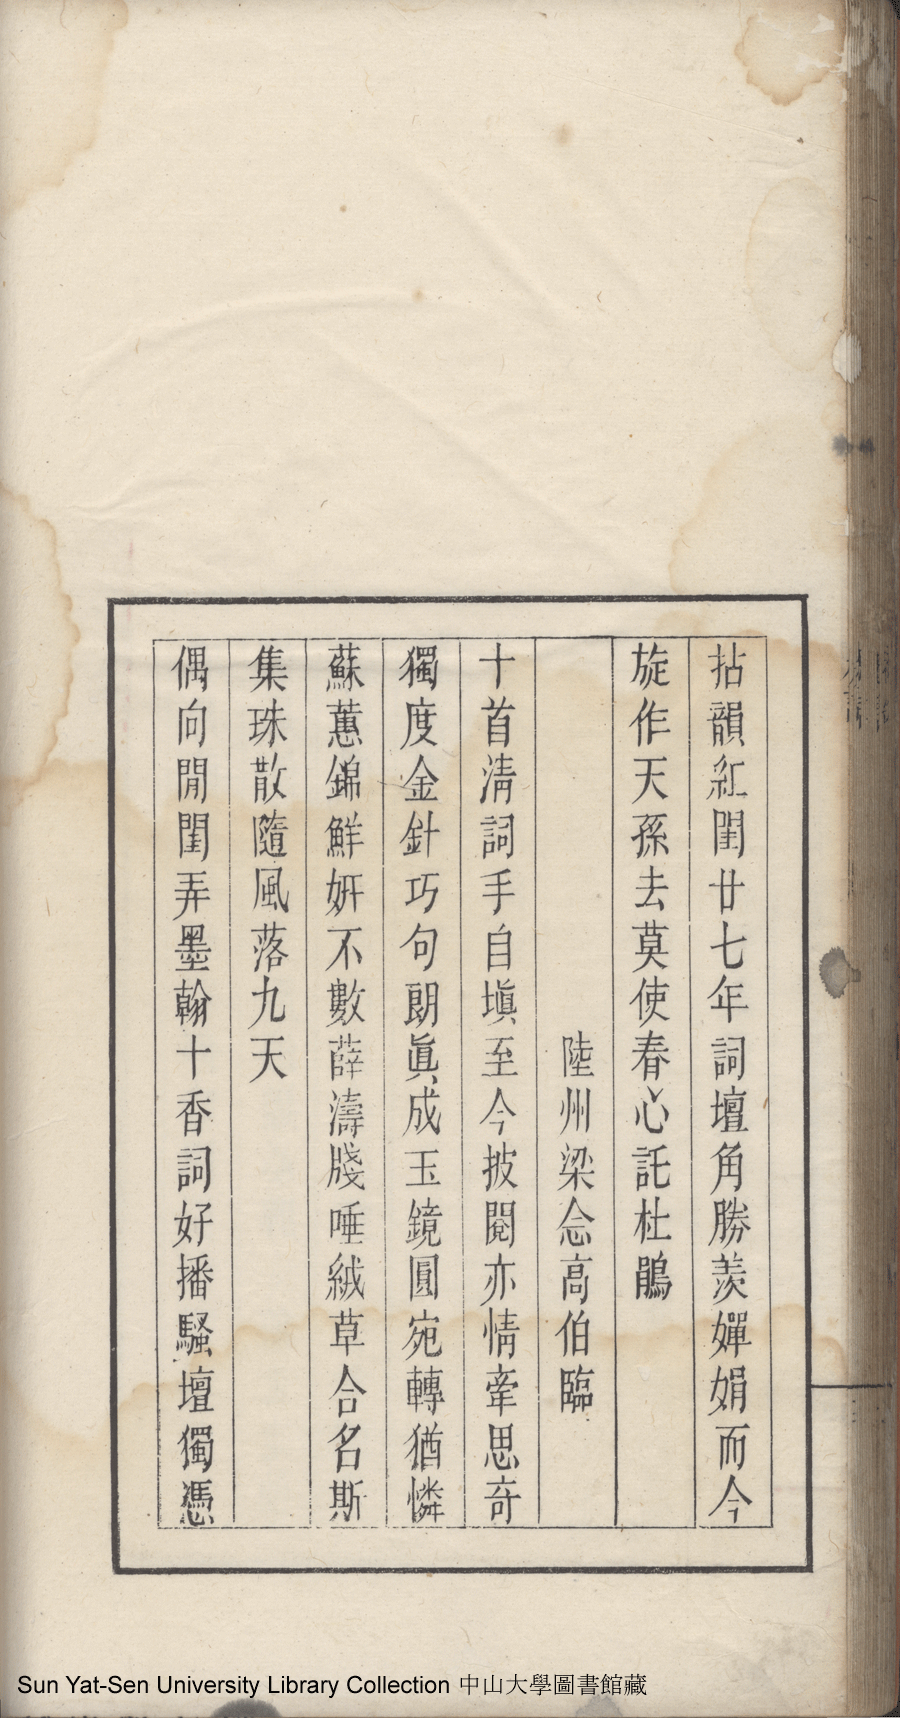 拈韻紅閨廿七年詞壇角勝羨嬋娟而今
旋作天孫去莫使春心託杜鵑
陸州梁念高伯臨
十首淸詞手自塡至今披閱亦情牽思奇
獨度金針巧句朗眞成玉鏡圓宛轉猶憐
蘇蕙錦鮮姸不數薛濤牋唾絨草合名斯
集珠散隨風落九天
偶向閒閨弄墨翰十香詞好播騷壇獨憑
Sun Yat-Sen University Library Collection 中山大學圖書館藏